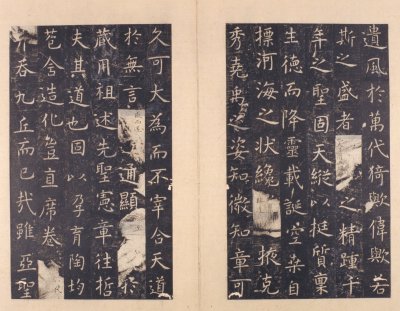 遺風於萬代猗歟偉歟若
斯之盛者之精踵千
年之聖固天縱以挺質稟
生德而降靈載誕空桑自
標河海之狀纔掖克
秀堯禹之姿知微知章可
久可大為而不宰合天道
於無言通顯於
藏用祖述先聖憲章往哲
夫其道也固以孕育陶均
苞含造化豈直席卷
并吞九丘而已哉雖亞聖